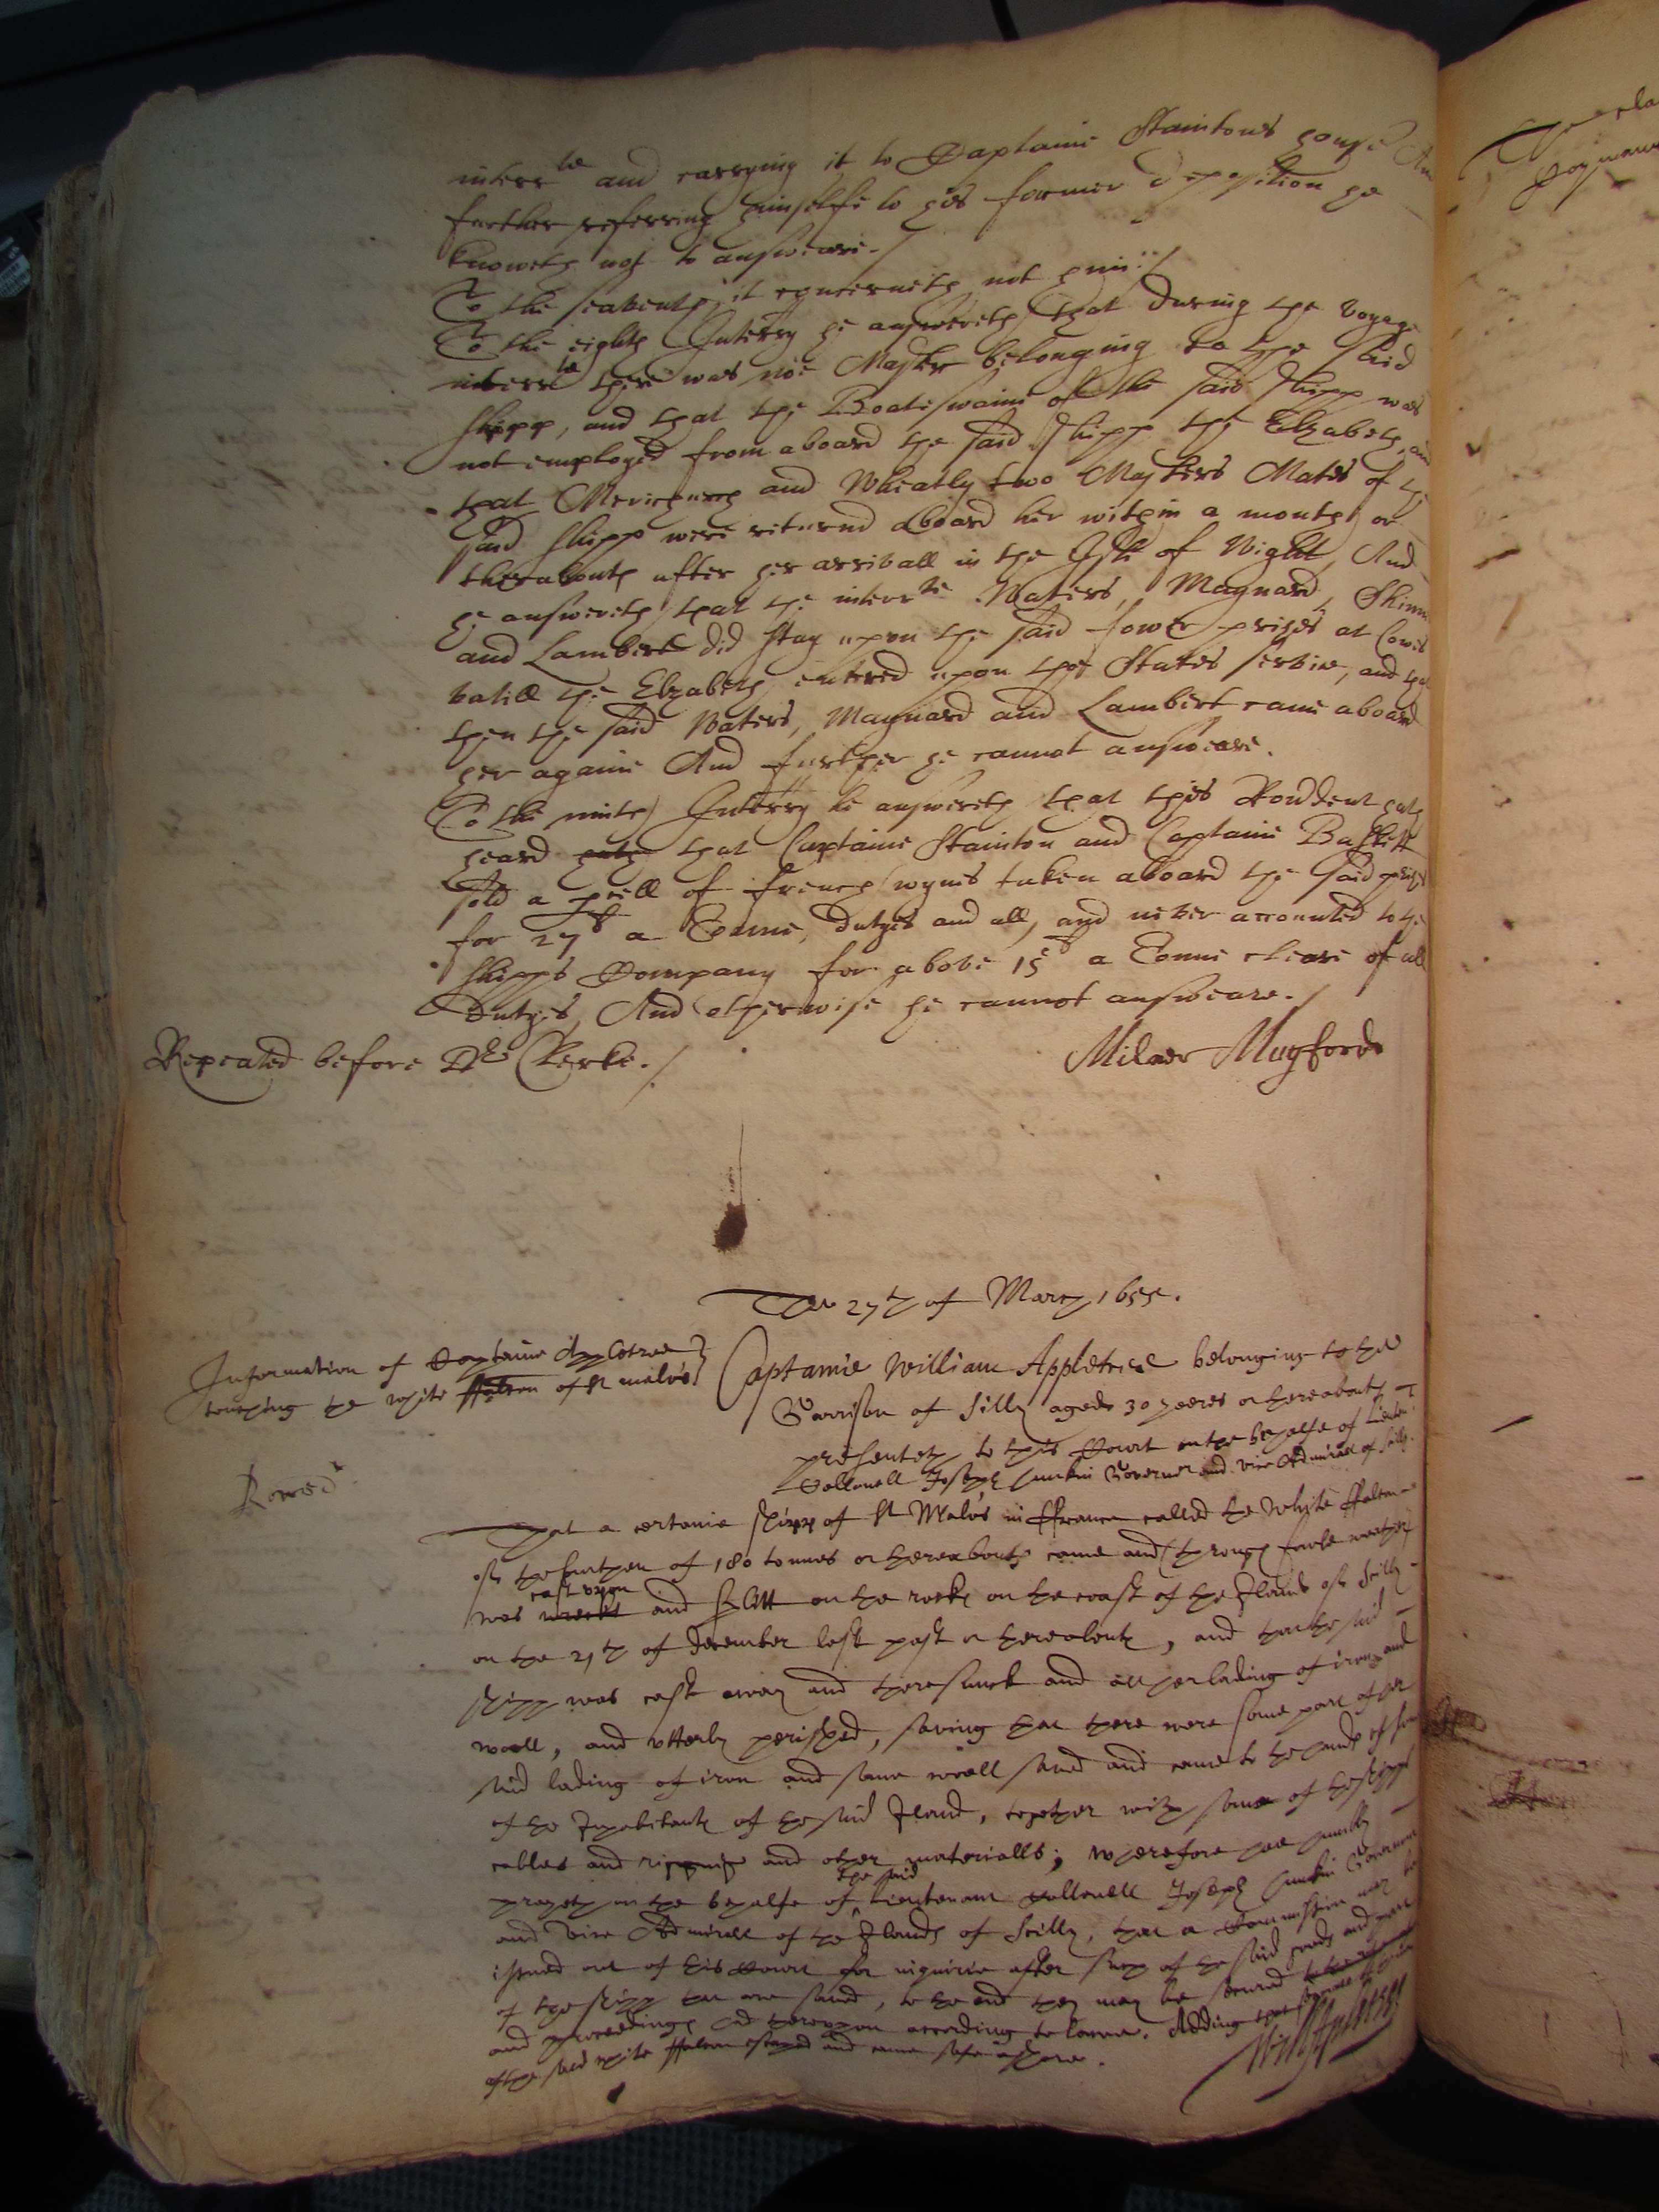 interr te and carrying it to Captaine Staintons house And
further referring himselfe to his former deposition he
knoweth not to answeare./
To the seaventh it concerneth not him./
To the eighth Interry he answereth that during the voyage
interr te there was noe Master belonging to the said
shipp, and that the Boateswaine of the said shipp was
not employed from aboard the said shipp the Elizabeth, and
that Merichurch and Wheatly two Masters Mates of the
said shipp were returnd aboard her within a month or
thereabouts after her arrivall in the Isle of Wight, And
he answereth that the interr te Waters, Maynard, Skinn
and Lambert did stay upon the said fower prizes at Cowes
untill the Elizabeth entered upon the States service, and that
then the said Waters, Maynard and Lambert came aboard
her againe And further he cannot answeare.
To the ninth Interry he answereth that this Rondent hath
heard hath that Captaine Stainton and Captaine Baskett
sold a prcell of french wynes taken aboard the said prizes
for 27 li a Tonne, dutyes and all, and never accounted to the
shipps Company for above 15 li a Tonne cleare of all
dutyes, And otherwise he cannot answeare./
Repeated before Dr Clerke./
Milder Mugford
The 27th of March 1655.
Information of Captaine Appletree
touching the white ffalcon of St malo's
Captaine William Appletree belonging to the
Garrison of Silly aged 30 yeeres or thereabouts
presenteth to this Court on the behalfe of Lieuten t
Collonell Joseph Hunkin Governor and vice Admirall of Silly.
That a certaine shipp of St Malo's in ffrance called the White ffalcon
of the burthen of 180 tonnes or thereabouts came and through fowle weather
cast upon
was wreckt and splitt on the rocks on the coast of the Iland of Scilly
on the 27th of December last past or thereabouts, and that the said
shipp was cast away and there sunck and all her lading of iron and
wooll, and utterly perished, saving that there were some part of her
said lading of iron and some wooll saved and came to the hands of some
of the Inhabitants of the said Iland, together with some of the shipps
cables and rigging and other materialls; wherefore hee humbly
the said
prayeth on the behalfe of Lieutenant Collonell Joseph Hunkin Governor
and vice Admirall of the Ilands of Scilly, that a Commission may be
issued out of this Court for inquirie after such of the said goods and part
of the shipp that are saved, to the end they may be secured
and proceedings had thereupon according to lawe. Adding that
of the said white ffalcon escaped and came safe ashore.